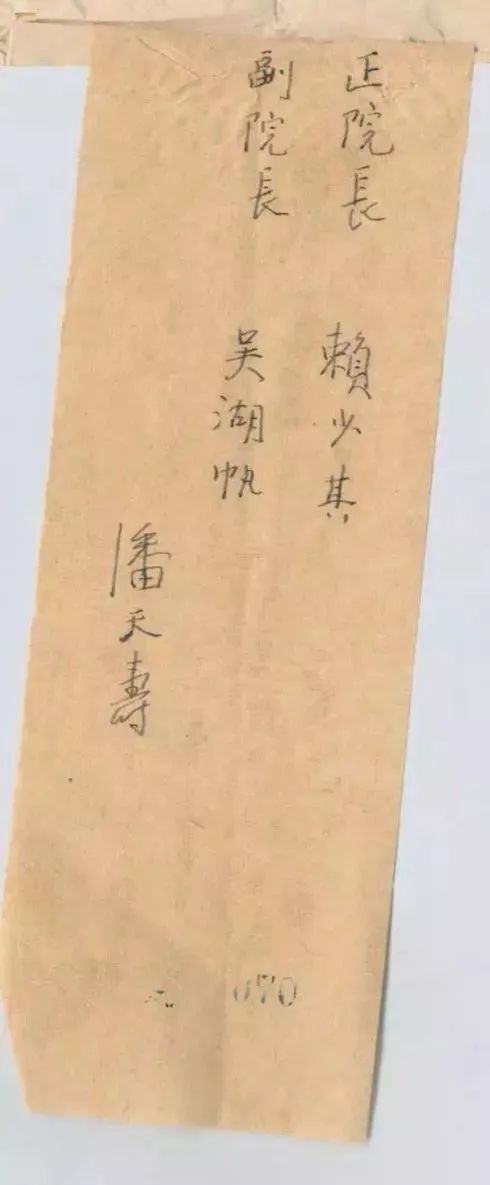 正院長 賴少其
副院長 吴湖帆
潘天壽
070